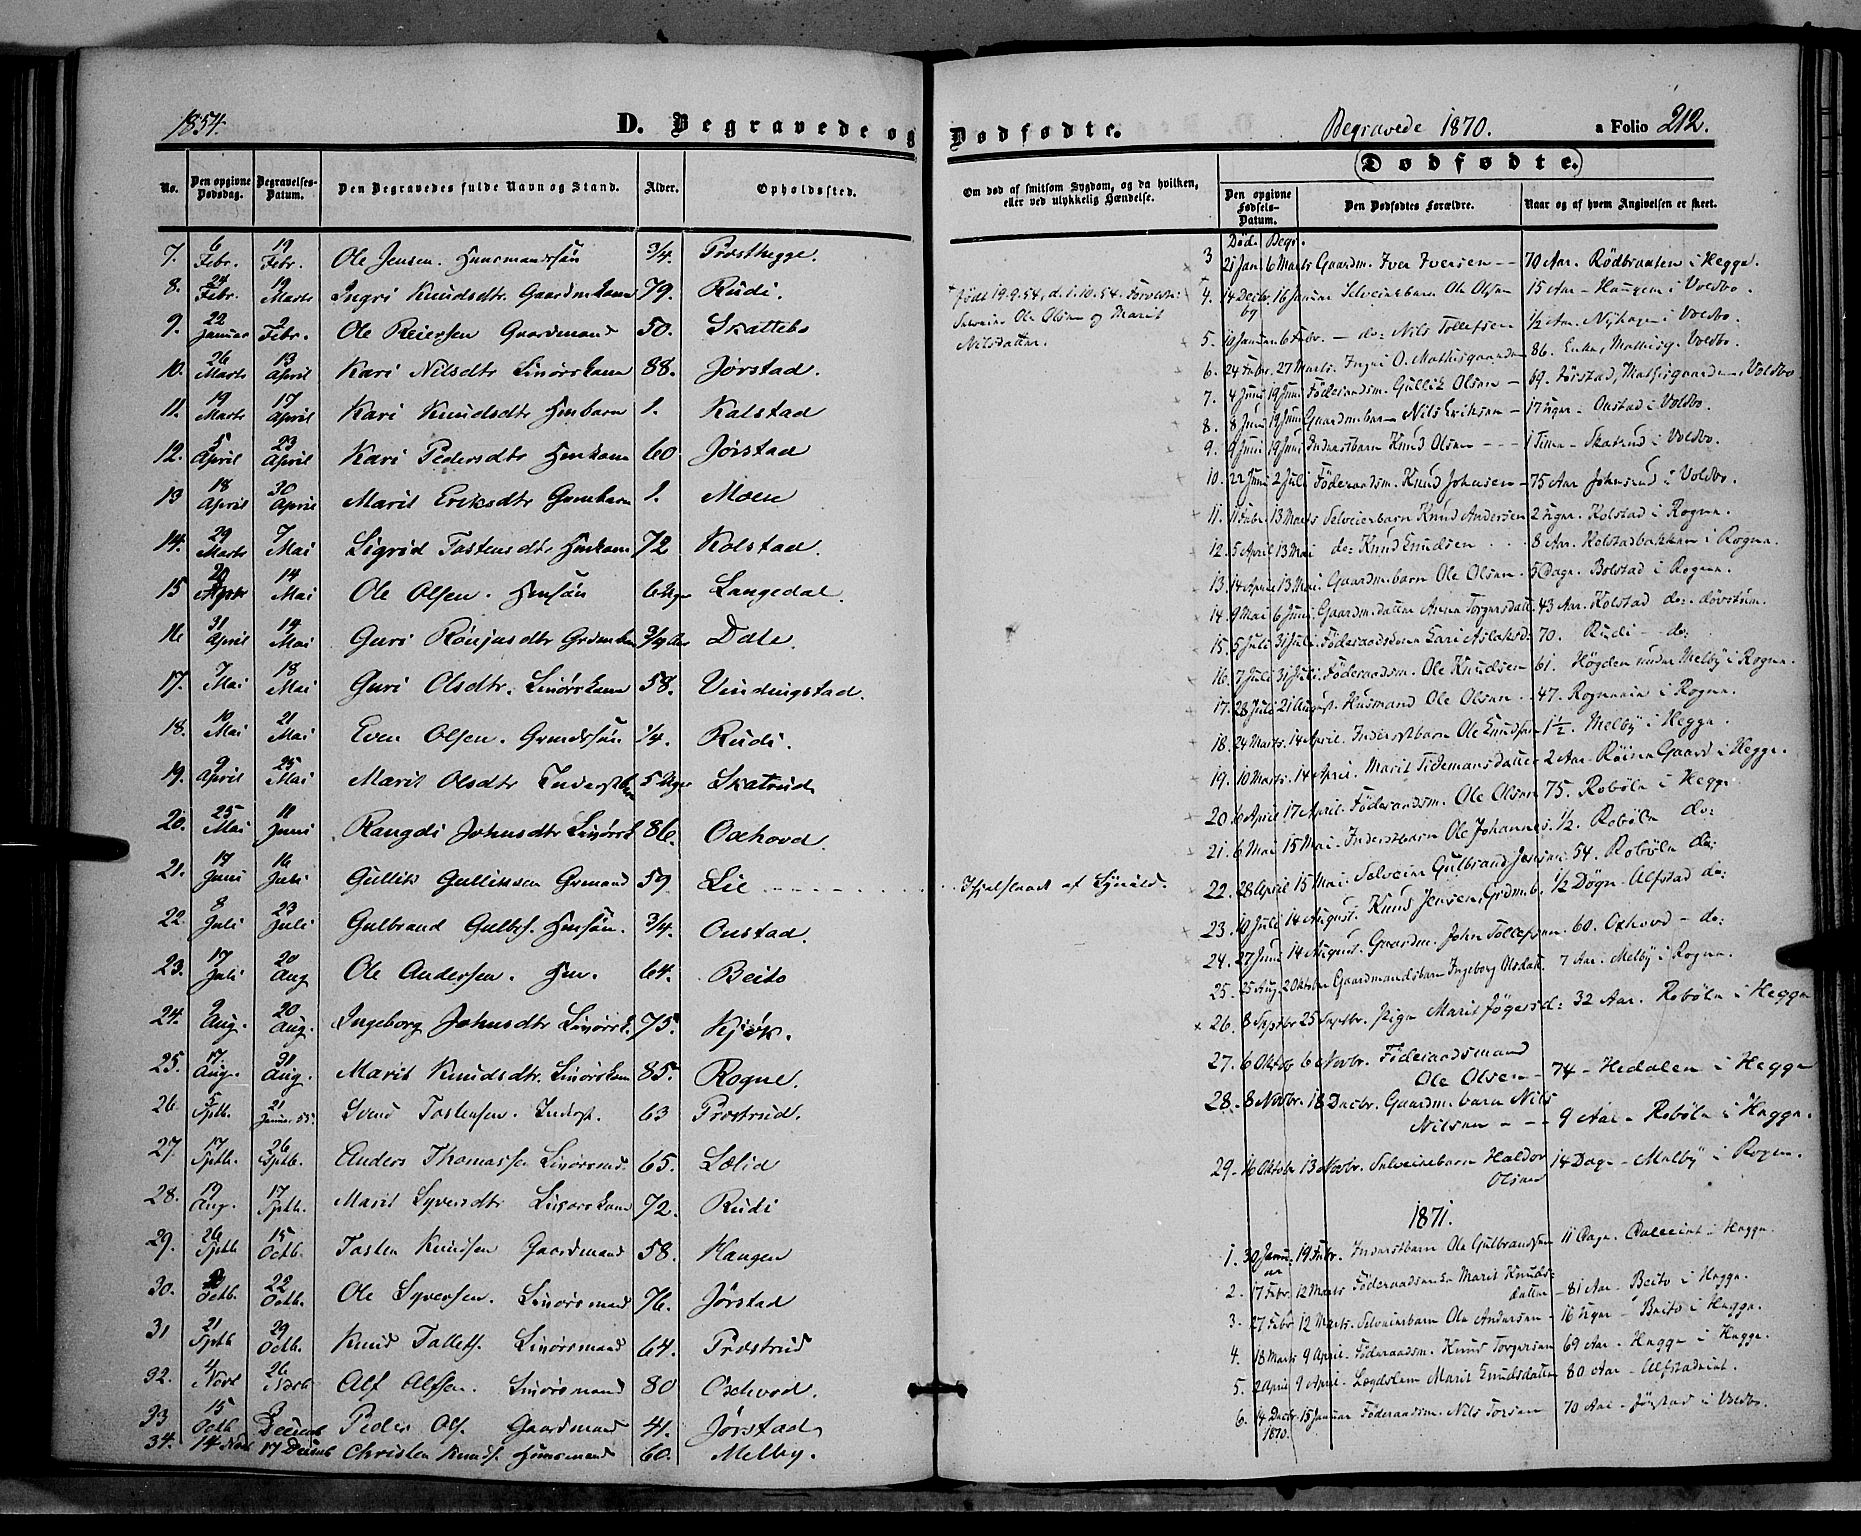 1854.
D. Begravede og
No.
Den opgivne Dødsdag.
Begravelses-Datum.
Den Begravedes fulde Navn og Stand.
Alder.
Opholdssted.
7. 6 Febr. 19 Febr. Ole Jensen. Huusmandssøn 3/4. Præsthegge.
8. 24 Febr. 19 Marts Ingri Knudsdtr Gaardmkone 79. Rudi.
9. 22 Januar 2 Febr. Ole Reiersen Gaardmand 50. Skattebo
10. 26 Marts 13 April Kari Nilsdtr Linørskone 88. Jørstad.
11. 19 Marts 17 April Kari Knudsdtr Hmbarn 1. Kalstad
12. 5 April 23 April Kari Pedersdtr Hmkone 60. Jørstad
13 18 April 30 April Marit Eriksdtr Gmbarn 1. Moen
14. 29 Marts 7 Mai Sigrid Tostensdtr Hmkone 72 Kolstad.
15 20 April 14 Mai Ole Olsen. Hmsøn 6 Uger Langedal.
16 31 April 14 Mai Guri Rønjusdtr 3/4 Dale.
17. 7 Mai 18 Mai Guri Olsdtr. Linørskone 58. Vindingstad.
18. 10 Mai 21 Mai Even Olsen. Grmdssøn 1/4. Rudi.
19. 9 April 25 Mai Marit Olsdtr 5 Uger Skatrud
20. 25 Mai 11 Juni Rangdi Johnsdtr Linørsk 86. Oxhovd.
21. 17 Juni 16 Juli Gullik Gulliksen Grmand 59. Lie
22. 8 Juli 23 Juli Gulbrand Gulbs. Hmsøn. 3/4. Onstad.
23. 17 Juli 20 Aug Ole Andersen. Hm. 64. Beito
24. 9 Aug. 20 Aug. Ingeborg Johnsdtr Linørsk. 75. Kjøk.
25. 17 Aug. 21 Aug. Marit Knudsdtr. Linørskone 85. Rogne.
26 5 Sptb. 21 Januar 55. Svend Tostensen. Inderst. 63 Præstrud.
27. 17 Sptb. 26 Sptb. Anders Thomassen Linørsmd. 65. Lælid
28. 19 Aug. 17 Sptb. Marit Syversdtr Linørskone 72. Rudi
29. 26 Sptb 15 Octb. Tosten Knudsen Gaardmand 58. Haugen
30. Octb. 22 Octb. Ole Syversen. Linørsmand 76. Jørstad
31 21 Sptb 29 Octb. Knud Tollefs. Linørsmand 64. Præstrud
32. 4 Novb 26 Novb Alf Alfsen. Linørsmand 80 Oxhovd.
33 15 Octb 3 Decemb Peder Ols. Gaardmand 41. Jørstad
34. 14 Novb 17 Decemb Christen Knuds. Huusmand 60. Melby.
Dødfødte.
Begravede 1870.
a Folio 212.
Dødfødte.
Om død af smitsom Sygdom, og da hvilken, eller ved ulykkelig Hændelse.
Den opgivne Fødsels-Datum.
Den Dødfødtes Forældre.
Naar og af hvem Angivelsen er skeet.
Død. Begr.
Født 19.9.54, d. 1.10.54. Forældre:
Selveier Ole Olsen og Marit
Nilsdatter.
Ihjelslaaet af
3 21 Jan 6 Marts Gaardm. Iver Iversen - - 70 Aar. Rødbraaten i Hegge.
4. 14 Decbr 16 Januar Selveierbarn Ole Olsen 15 Aar - Haugen i Voldbo.
5. 10 Januar 6 Febr. - do: Nils Tollefsen 1/2 Aar. Nyhagen i Voldbo.
6. 24 Febr. 27 Marts. Ingri O. Mathisgaarden 86. Enke, Mathisg. Voldbo.
7. 4 Juni 19 Juni Föderaadsm. Gullik Olsen - 69. Jørstad, Mathisgaarden. Voldbo
8. 8 Juni 19 Juni Gaardm.barn Nils Eriksen - 17 Uger - Onstad i Voldbo.
9. 9 Juni 19 Juni Inderstbarn Knud Olsen - - - 1 Time - Skatrud i Voldbo.
10. 22 Juni 2 Juli Föderaadsm. Knud Johnsen - 75 Aar Johnsrud i Voldbo.
11. 11 Febr. 13 Marts Selveierbarn Knud Andersen 2 Uger. Kolstad i Rogne.
12. 5 April 13 Mai do: Knud Knudsen . . . 8 Aar. Kolstadbakken i Rogne.
13. 14 April 13 Mai Gaardm.barn Ole Olsen. 5 Dage. Bolstad i Rogne.
14. 9 Mai 6 Juni. Gaardm.datter Anne Torgersdatt. 43 Aar. Kolstad do: døvstum.
15. 5 Juli 31 Juli. Föderaadskone Kari Aslaksd: 70. Rudi - do:
16. 7 Juli 31 Juli. Föderaadsm. Ole Knudsen 61. Høgden under Melby i Rogne.
17. 28 Juli 21 August. Husmand Ole Olsen . 47. i Rogne.
18. 24 Marts. 14 April. Inderstbarn Ole Knudsen 1½. Melby i Hegge.
19. 10 Marts. 14 April. Marit Tidemansdatter 2 Aar. Gaard i Hegge.
20. 6 April 17 April. Föderaadsm. Ole Olsen 75. Robøle i Hegge
21. 6 Mai 15 Mai. Inderstbarn Ole Johannes. 1/2. Robøle do:
22. 28 April 15 Mai. Selveier Gulbrand Jensen. 54. Robøle do:
23. 10 Juli 14 August. Knud Jensen, Grdm.b. 1/2 Døgn. Alfstad do:
24. 27 Juni 14 August. Gaardm. John Tollefsen. 60. Oxhovd - do:
25. 25 Aug. 2 Oktober Gaardmandsbarn Ingeborg Olsdatt. 7 Aar. Melby i Rogne.
26. 8 Septbr 25 Septbr. Pige Marit 32 Aar. Robøle i Hegge
27. 6 Oktob 6 Novbr. Föderaadsmand
Ole Olsen - 74 - Hedalen i Hegge
28. 8 Novbr. 18 Decbr. Gaardm.barn Nils
Nilsen - - - 9 Aar - Robøle i Hegge.
29. 16 Oktobr 13 Novbr. Selveierbarn Haldor
Olsen 14 Dage - Melby i Rogne.
1871.
1. 30 Januar 19 Febr. Inderstbarn Ole Gulbrandsen 11 Dage. i Hegge.
2. 17 Febr. 12 Marts Föderaadsm.k. Marit Knuds-
datter - 81 Aar - Beito i Hegge.
3. 27 Febr 12 Marts. Selveierbarn Ole Andersen - 16 Uger - Beito i Hegge.
4. 18 Marts 9 April. Föderaadsm. Knud Torgersen 69 Aar - Hegge i Hegge.
5. 2 April 9 April. Lægdslem Marit Knudsdatter 80 Aar - Alfstadeiet.
6. 14 Decbr 1870. 15 Januar Föderaadsm. Nils Torsen 70 Aar - Jørstad i Voldbo.